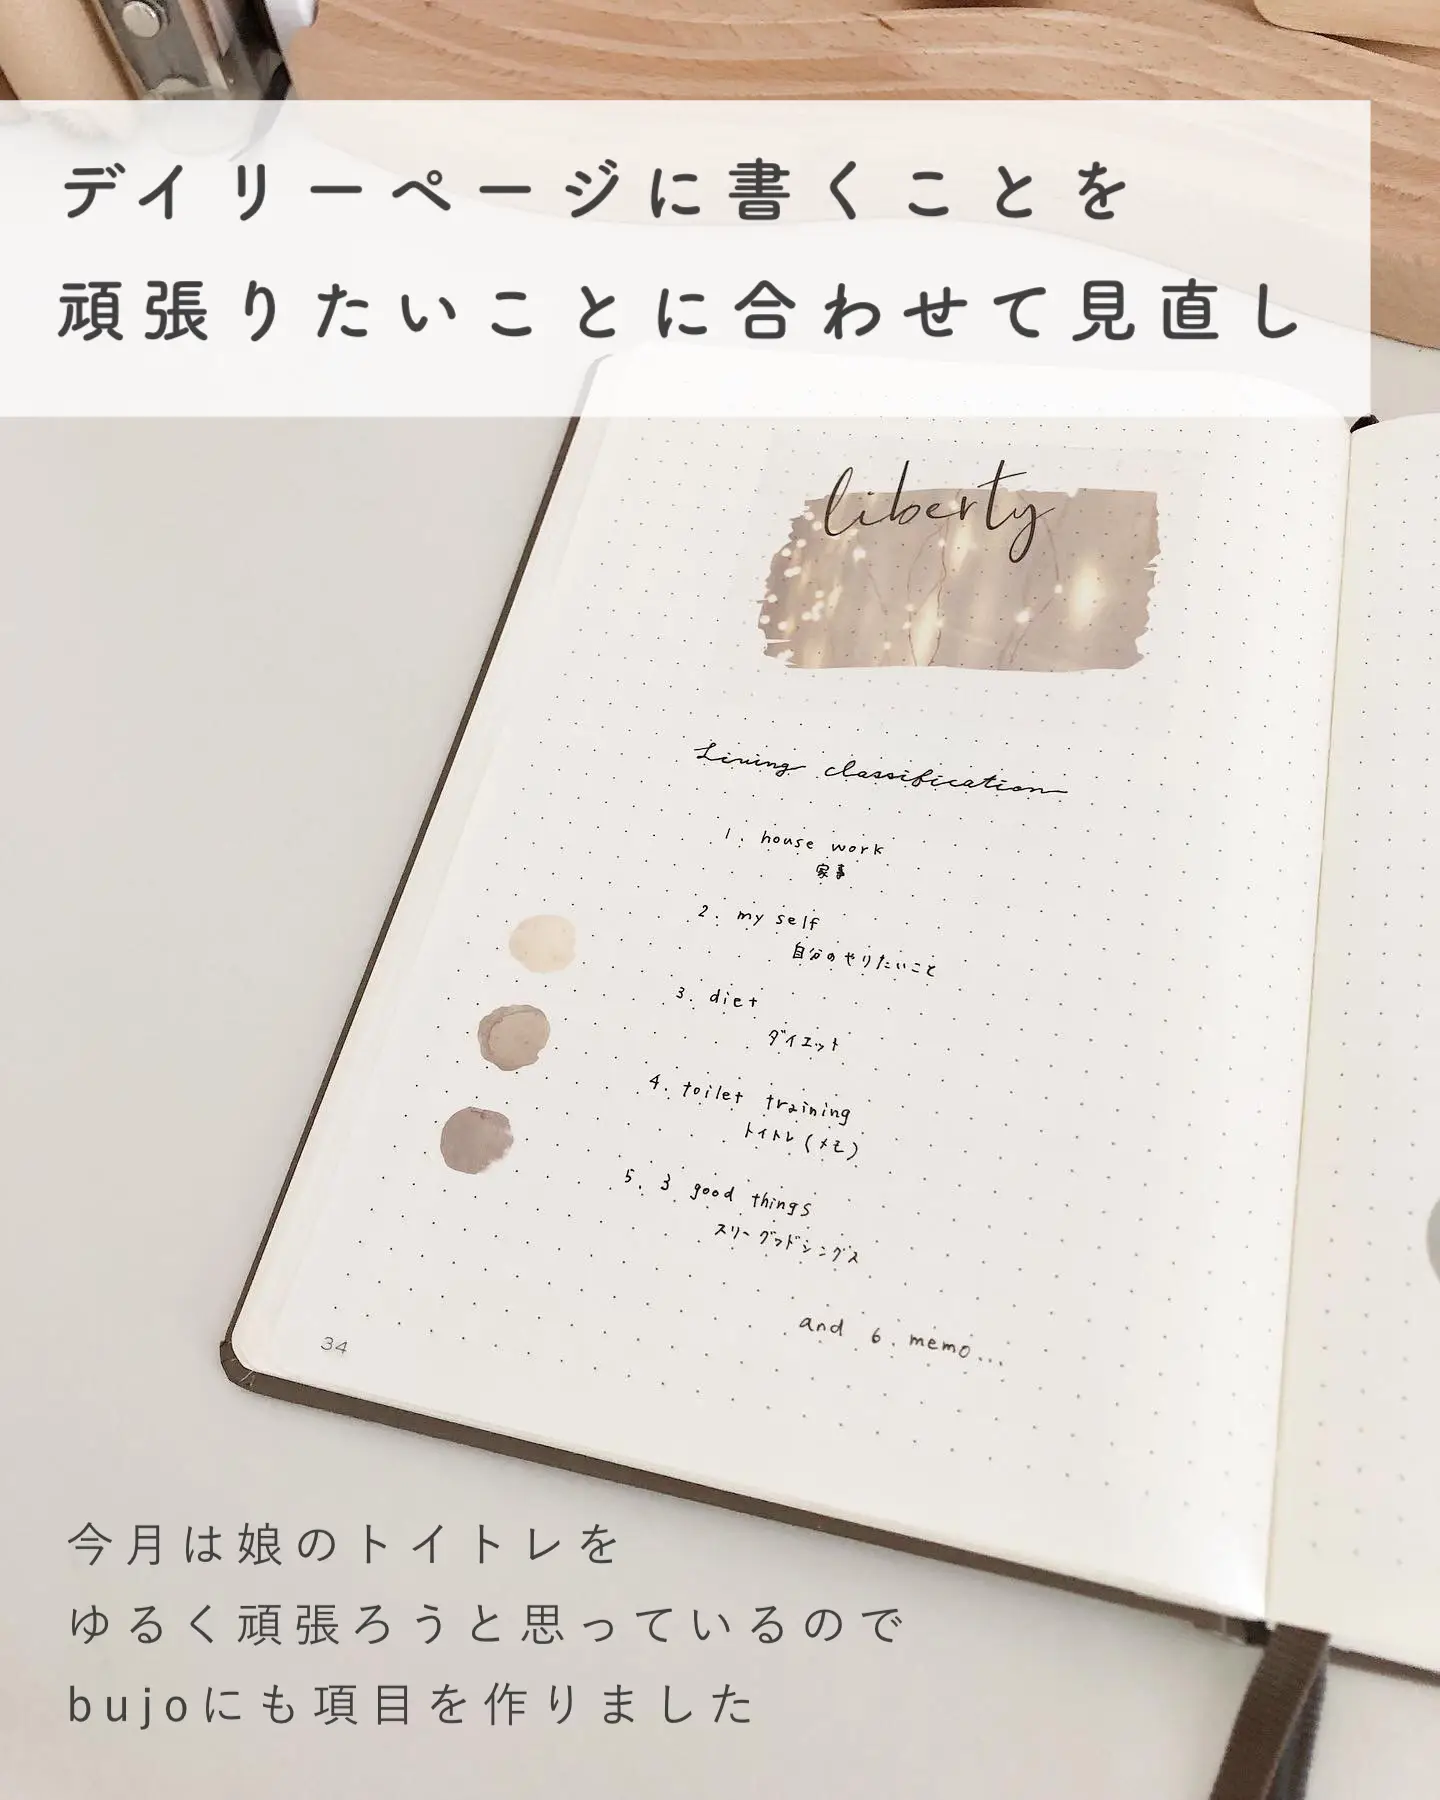 デイリーページに書くことを
頑張りたいことに合わせて見直し
liberty
Living classification
1. house work
家事
2. my self
自分のやりたいこと
3. diet
ダイエット
4. toilet training
トイトレ(メモ)
5. 3 good things
スリーグッドシングス
and 6. memo...
34
今月は娘のトイトレを
ゆるく頑張ろうと思っているので
bujoにも項目を作りました